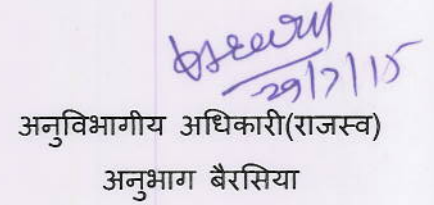 29/7/15
अनुविभागीय अधिकारी(राजस्व)
अनुभाग बैरसिया